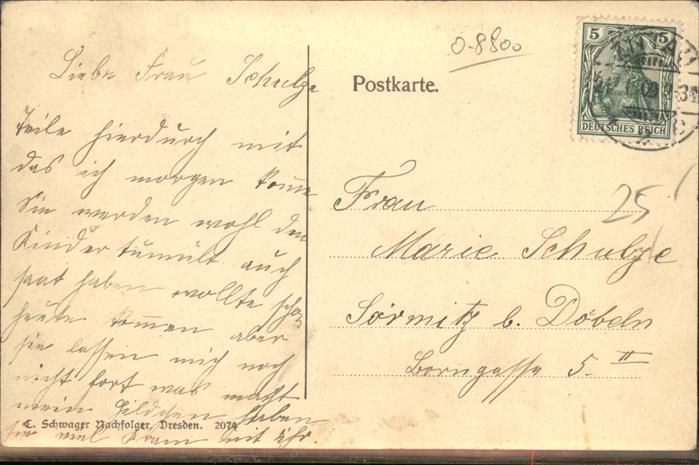 0-8800
5 5
DEUTSCHES REICH
Postkarte.
Liebe Frau Schulze
Teile hierdurch mit
das ich morgen komme
Sie werden wohl den
Kindertumült auch
satt haben wollte schon
heute kommen aber
sie lassen mich noch
nicht fort was macht
mein Hildchen haben
sie viel Kram mit ihr.
25
Frau
Marie Schulze
Sörmitz b. Döbeln
Borngasse 5. II
C. Schwager Nachfolger, Dresden. 2074